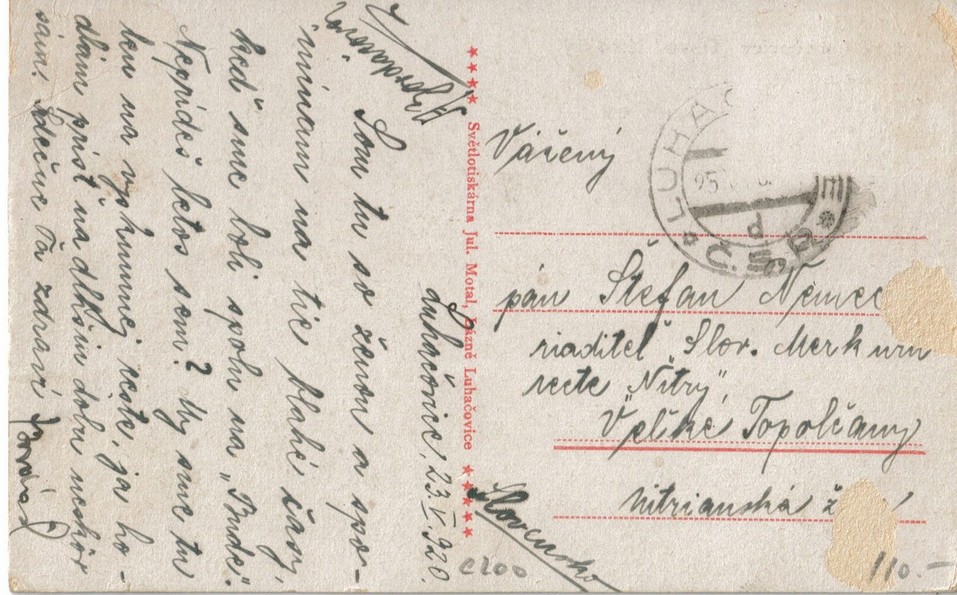 Luhačovice, 23. V. 920.
Som tu so ženou a spo-
mínam na tie blahé časy,
keď sme boli spolu na „Bude“.
Neprídeš letos sem? My sme tu
len na výskumnej ceste, ja ho-
dlám prísť na dlhšiu dobu neskôr
sám. Srdečne Ťa zdraví
★★★★ Světlotiskárna Jul. Motal, Lázně Luhačovice ★★★★★
Vážený
pán Štefan Němec
riaditeľ „Slov. Merkuru
recte „Nitry“,
Veľké Topolčany
Nitrianská ž
Slovensko
LUHAČ
25
c200
110.-